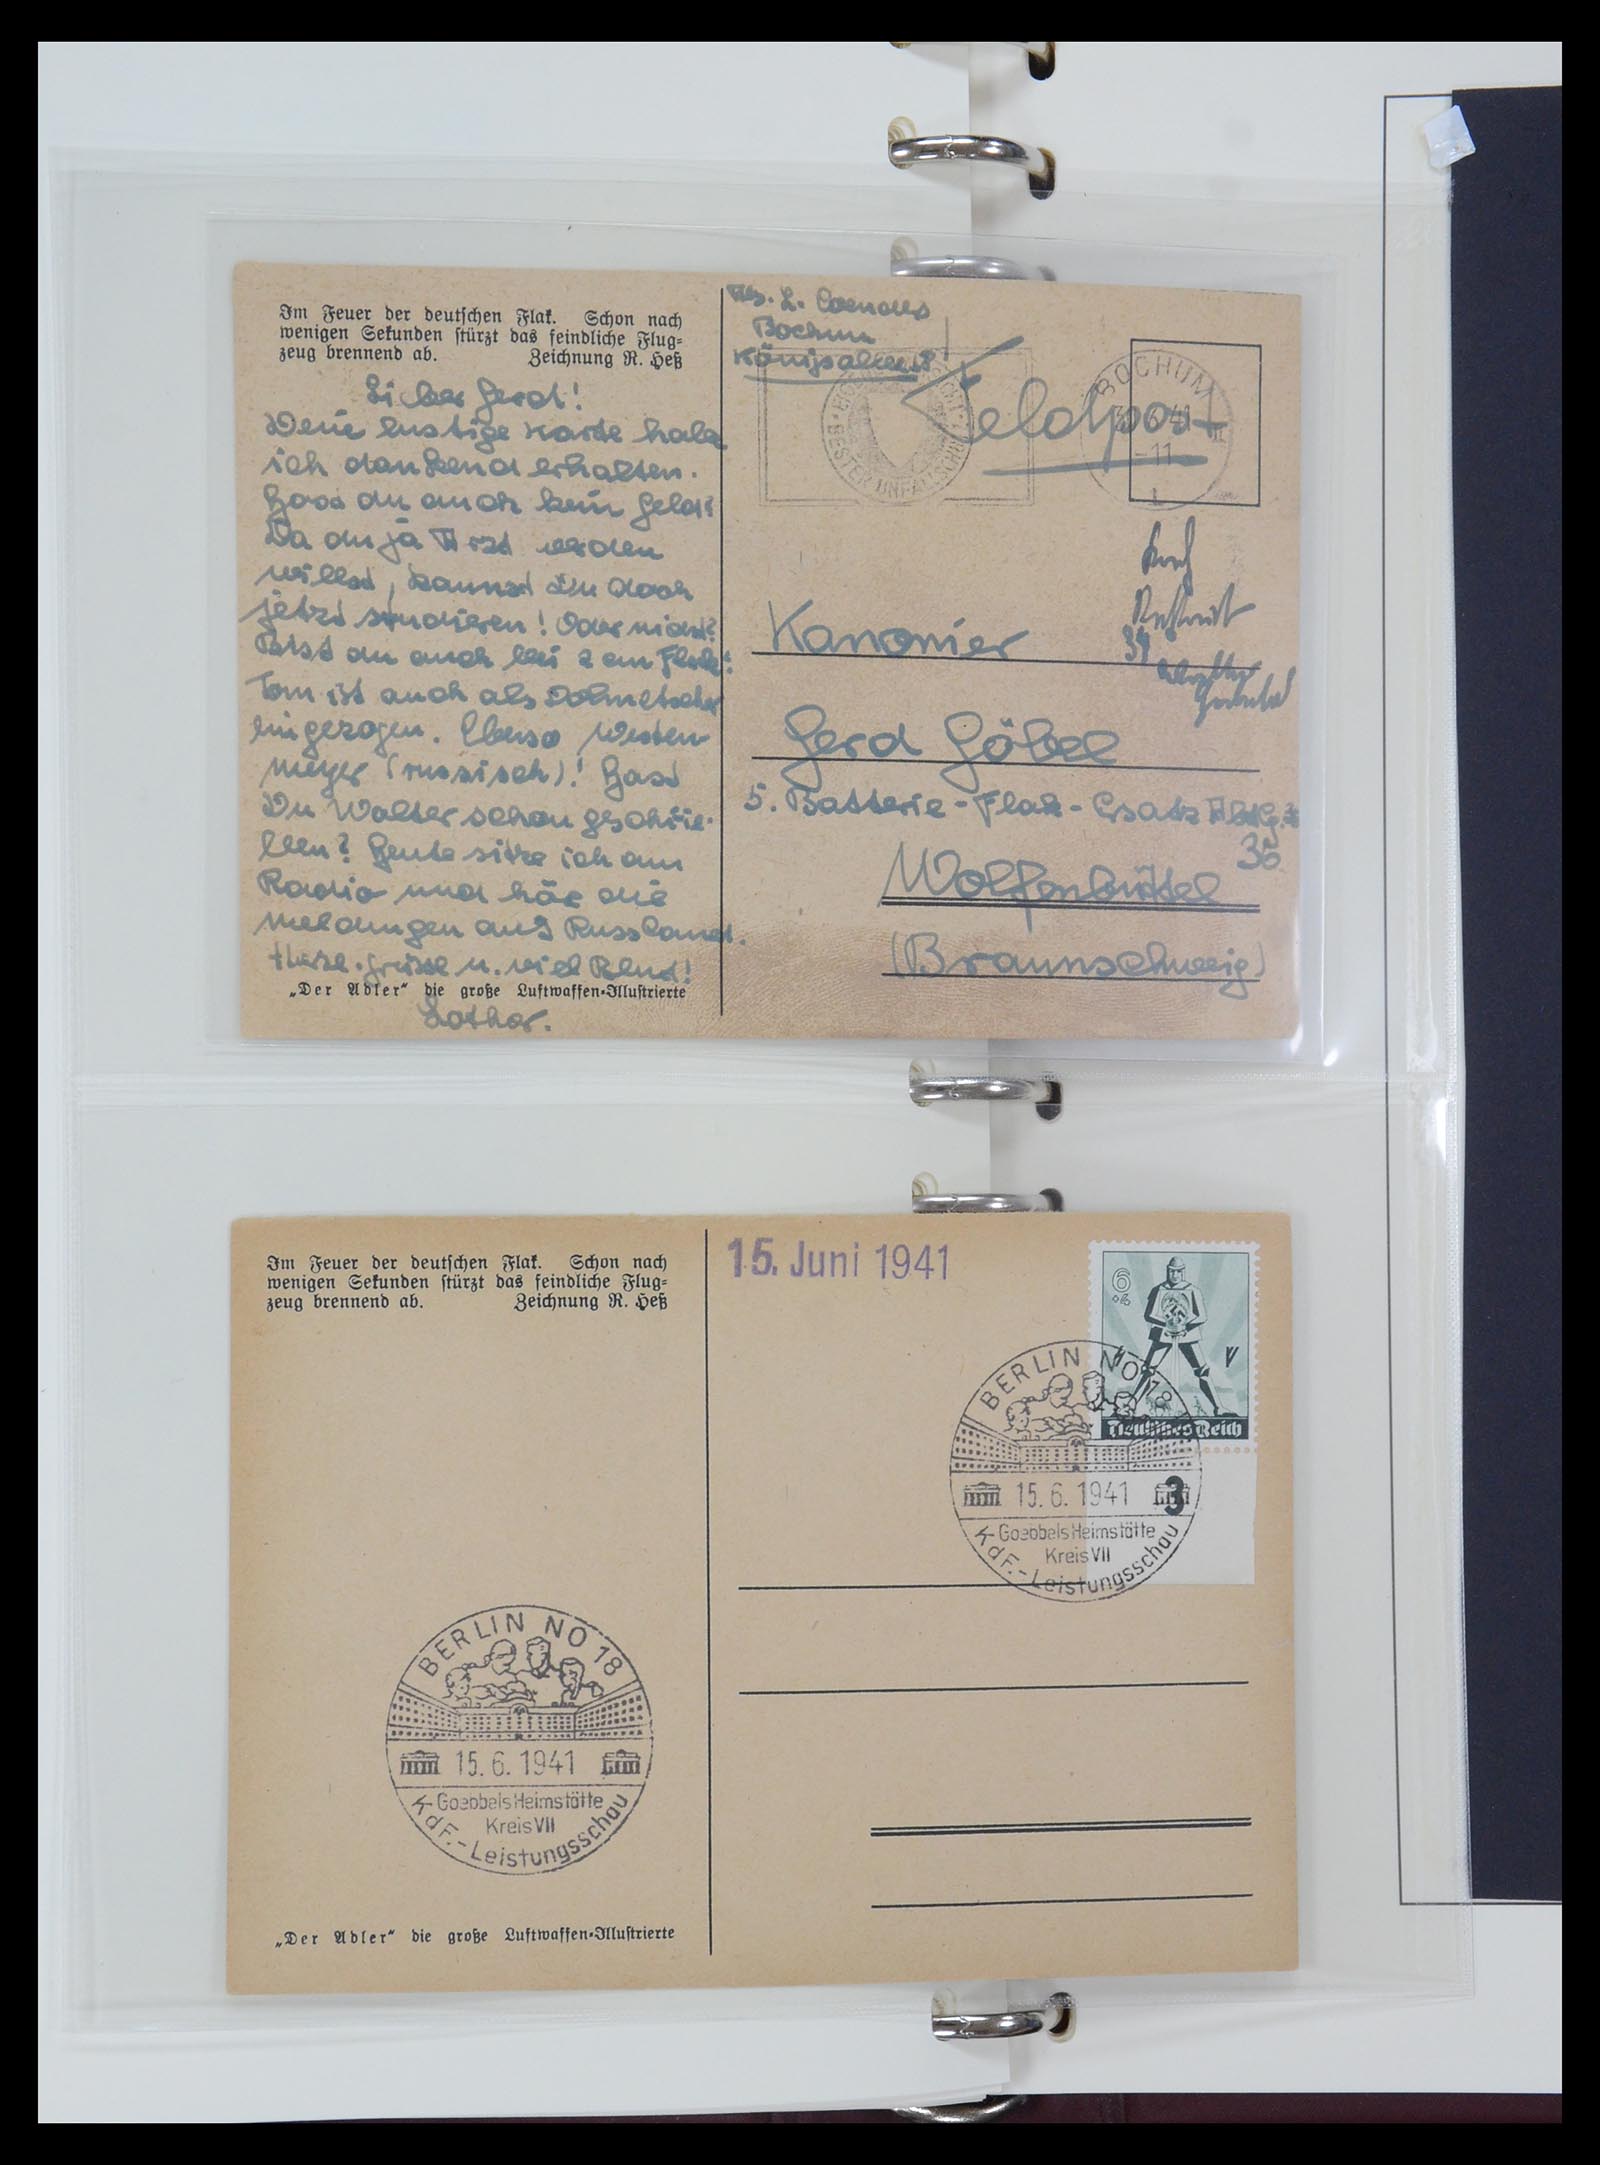 Im Feuer der deutschen Flak. Schon nach
wenigen Sekunden stürzt das feindliche Flug-
zeug brennend ab. Zeichnung R. Heß
Lieber Gerd!
Deine lustige Karte habe
ich dankend erhalten.
Hast du auch kein Geld?
Da du ja Arzt werden
willst, kannst Du doch
jetzt studieren! Oder nicht?
Bist du auch bei 2 cm Flak?
Tom ist auch als Dolmetscher
eingezogen. Ebenso Westen-
meyer (russisch)! Hast
Du Walter schon geschrie-
ben? Heute sitze ich am
Radio und hör die
Meldungen aus Russland.
Herzl. Grüsse u. viel
Lothar.
„Der Adler“ die große Luftwaffen-Illustrierte
Abs. L.
Bochum
Königsallee
Feldpost
BOCHUM
6.41
-11
BESTER UNFALLSCHUTZ
Kanonier
Gerd Göbel
5. Batterie-Flak-Ersatz Abtlg.
36
Wolfenbüttel
(Braunschweig)
Im Feuer der deutschen Flak. Schon nach
wenigen Sekunden stürzt das feindliche Flug-
zeug brennend ab. Zeichnung R. Heß
„Der Adler“ die große Luftwaffen-Illustrierte
15. Juni 1941
6
+4
Deutsches Reich
3
BERLIN NO 18
15.6.1941
Goebbels Heimstätte
Kreis VII
KdF.-Leistungsschau
BERLIN NO 18
15.6.1941
Goebbels Heimstätte
Kreis VII
KdF.-Leistungsschau